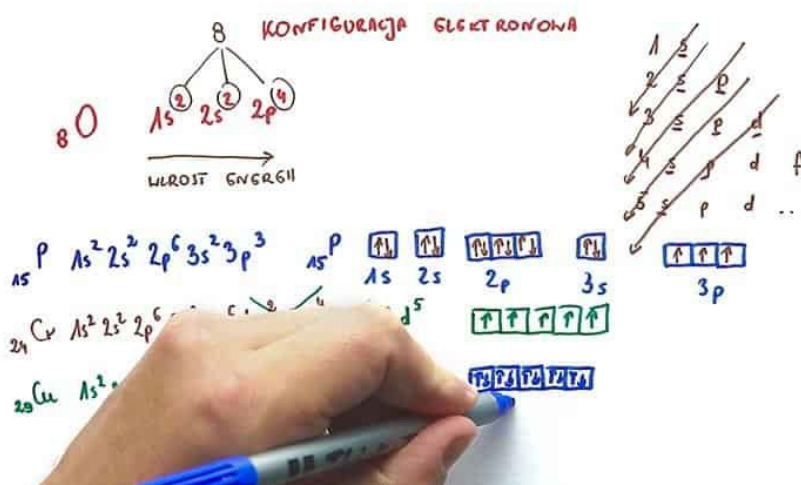 8 KONFIGURACJA ELEKTRONOWA
₈O 1s² 2s² 2p⁴
WZROST ENERGII
1 s
2 s p
3 s p d
4 s p d f
5 s p d ..
₁₅P 1s² 2s² 2p⁶ 3s² 3p³ ₁₅P ↑↓ ↑↓ ↑↓ ↑↓ ↑↓ ↑↓ ↑ ↑ ↑
1s 2s 2p 3s 3p
₂₄Cr 1s² 2s² 2p⁶ d⁵ ↑ ↑ ↑ ↑ ↑
₂₉Cu 1s² ↑↓ ↑↓ ↑↓ ↑↓ ↑↓